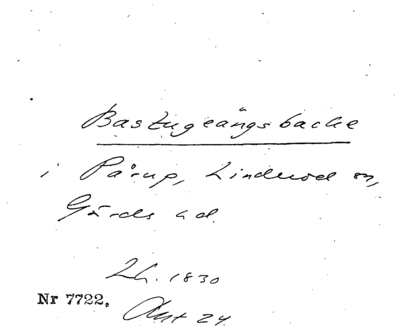 Bastugeängsbacke
i Pårup, Linderöd sn,
Gärds hd.
Lh. 1830
Nr 7722. Akt 24